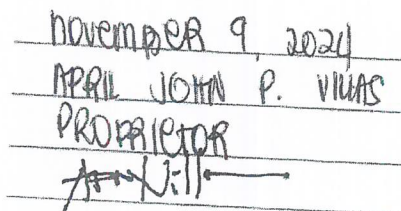 NOVEMBER 9, 2024
APRIL JOHN P. VILLAS
PROPRIETOR